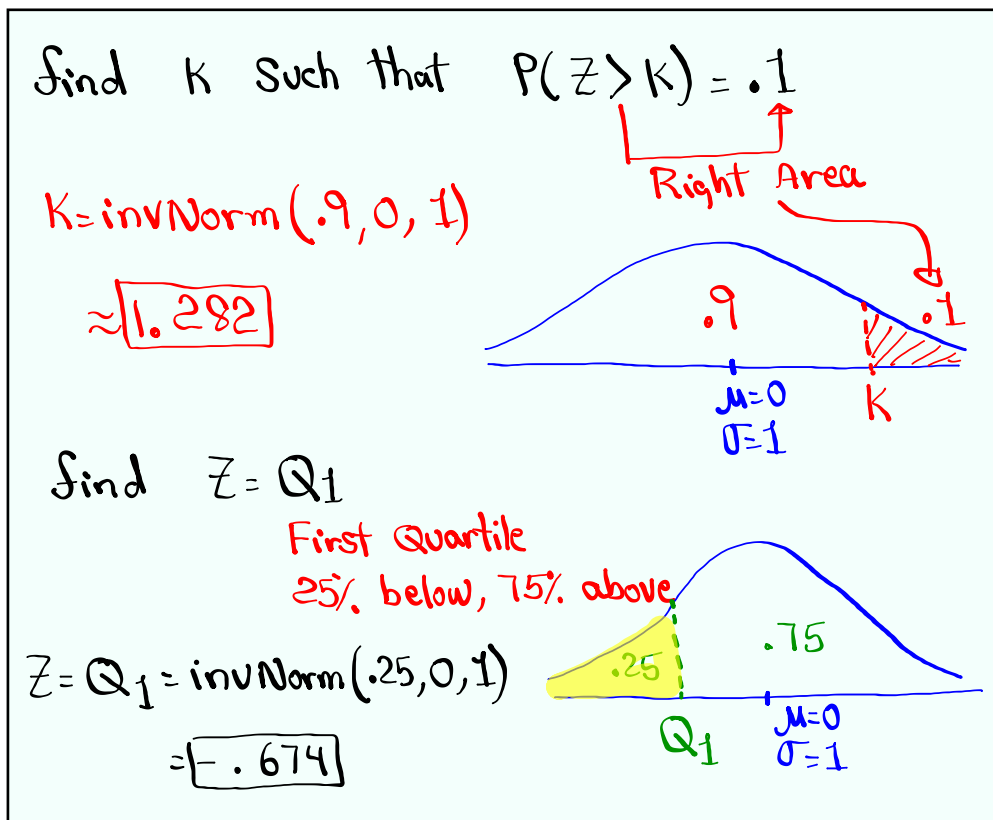 find K such that P(Z > K) = .1
Right Area
K = invNorm(.9, 0, 1)
≈ 1.282
.9
.1
μ=0
K
σ=1
find Z = Q1
First Quartile
25% below, 75% above
.25
.75
Z = Q1 = invNorm(.25, 0, 1)
Q1
μ=0
σ=1
= -.674